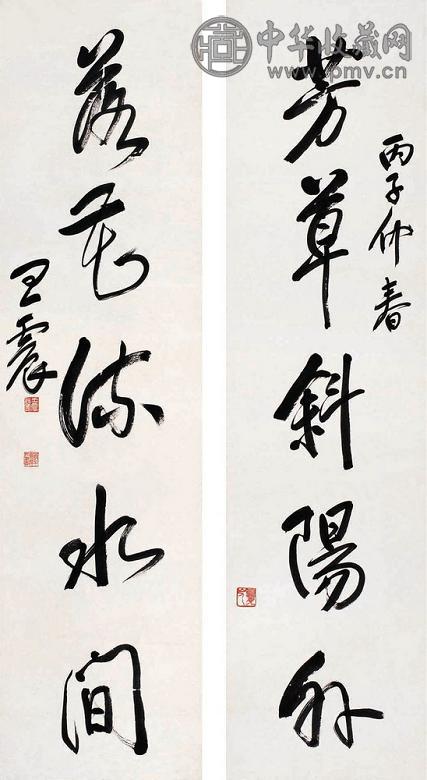 中华收藏网
www.pmv.cn
芳草斜陽外
丙子仲春
落花流水間
王震